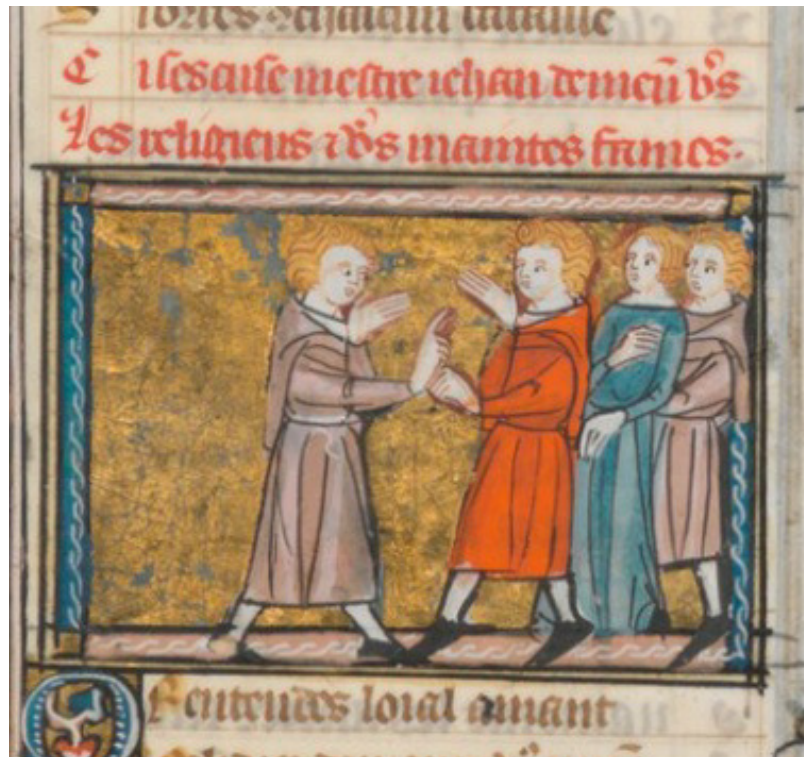 bataille
Ci sescuse mestre iehan demeũ v̾s
Les religieus ⁊ v̾s maintes fames.
OR entendes loial amant